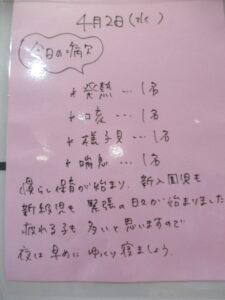 4月2日(水)
今日の病欠
* 発熱…1名
* 口衰…1名
* 様子見…1名
* 喘息…1名
慣らし保育が始まり、新入園児も
新級児も 緊張の日々が始まりました
疲れる子も 多いと思いますので
夜は早めに ゆっくり寝ましょう。